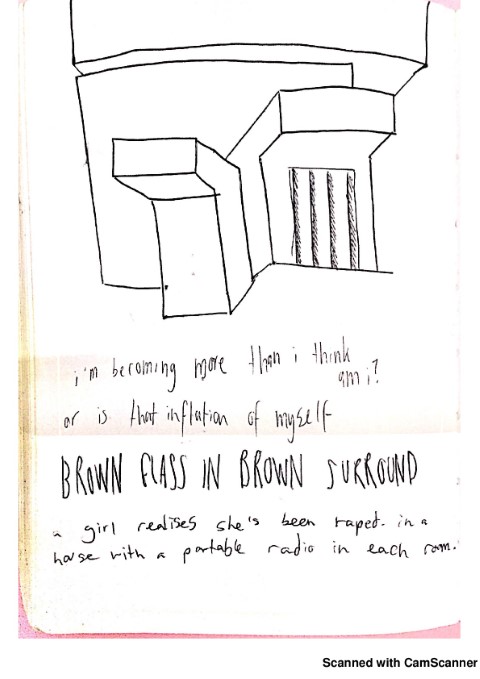 i'm becoming more than i think
am i?
or is that inflation of myself
BROWN GLASS IN BROWN SURROUND
a girl realises she's been raped. in a
house with a portable radio in each room.
Scanned with CamScanner